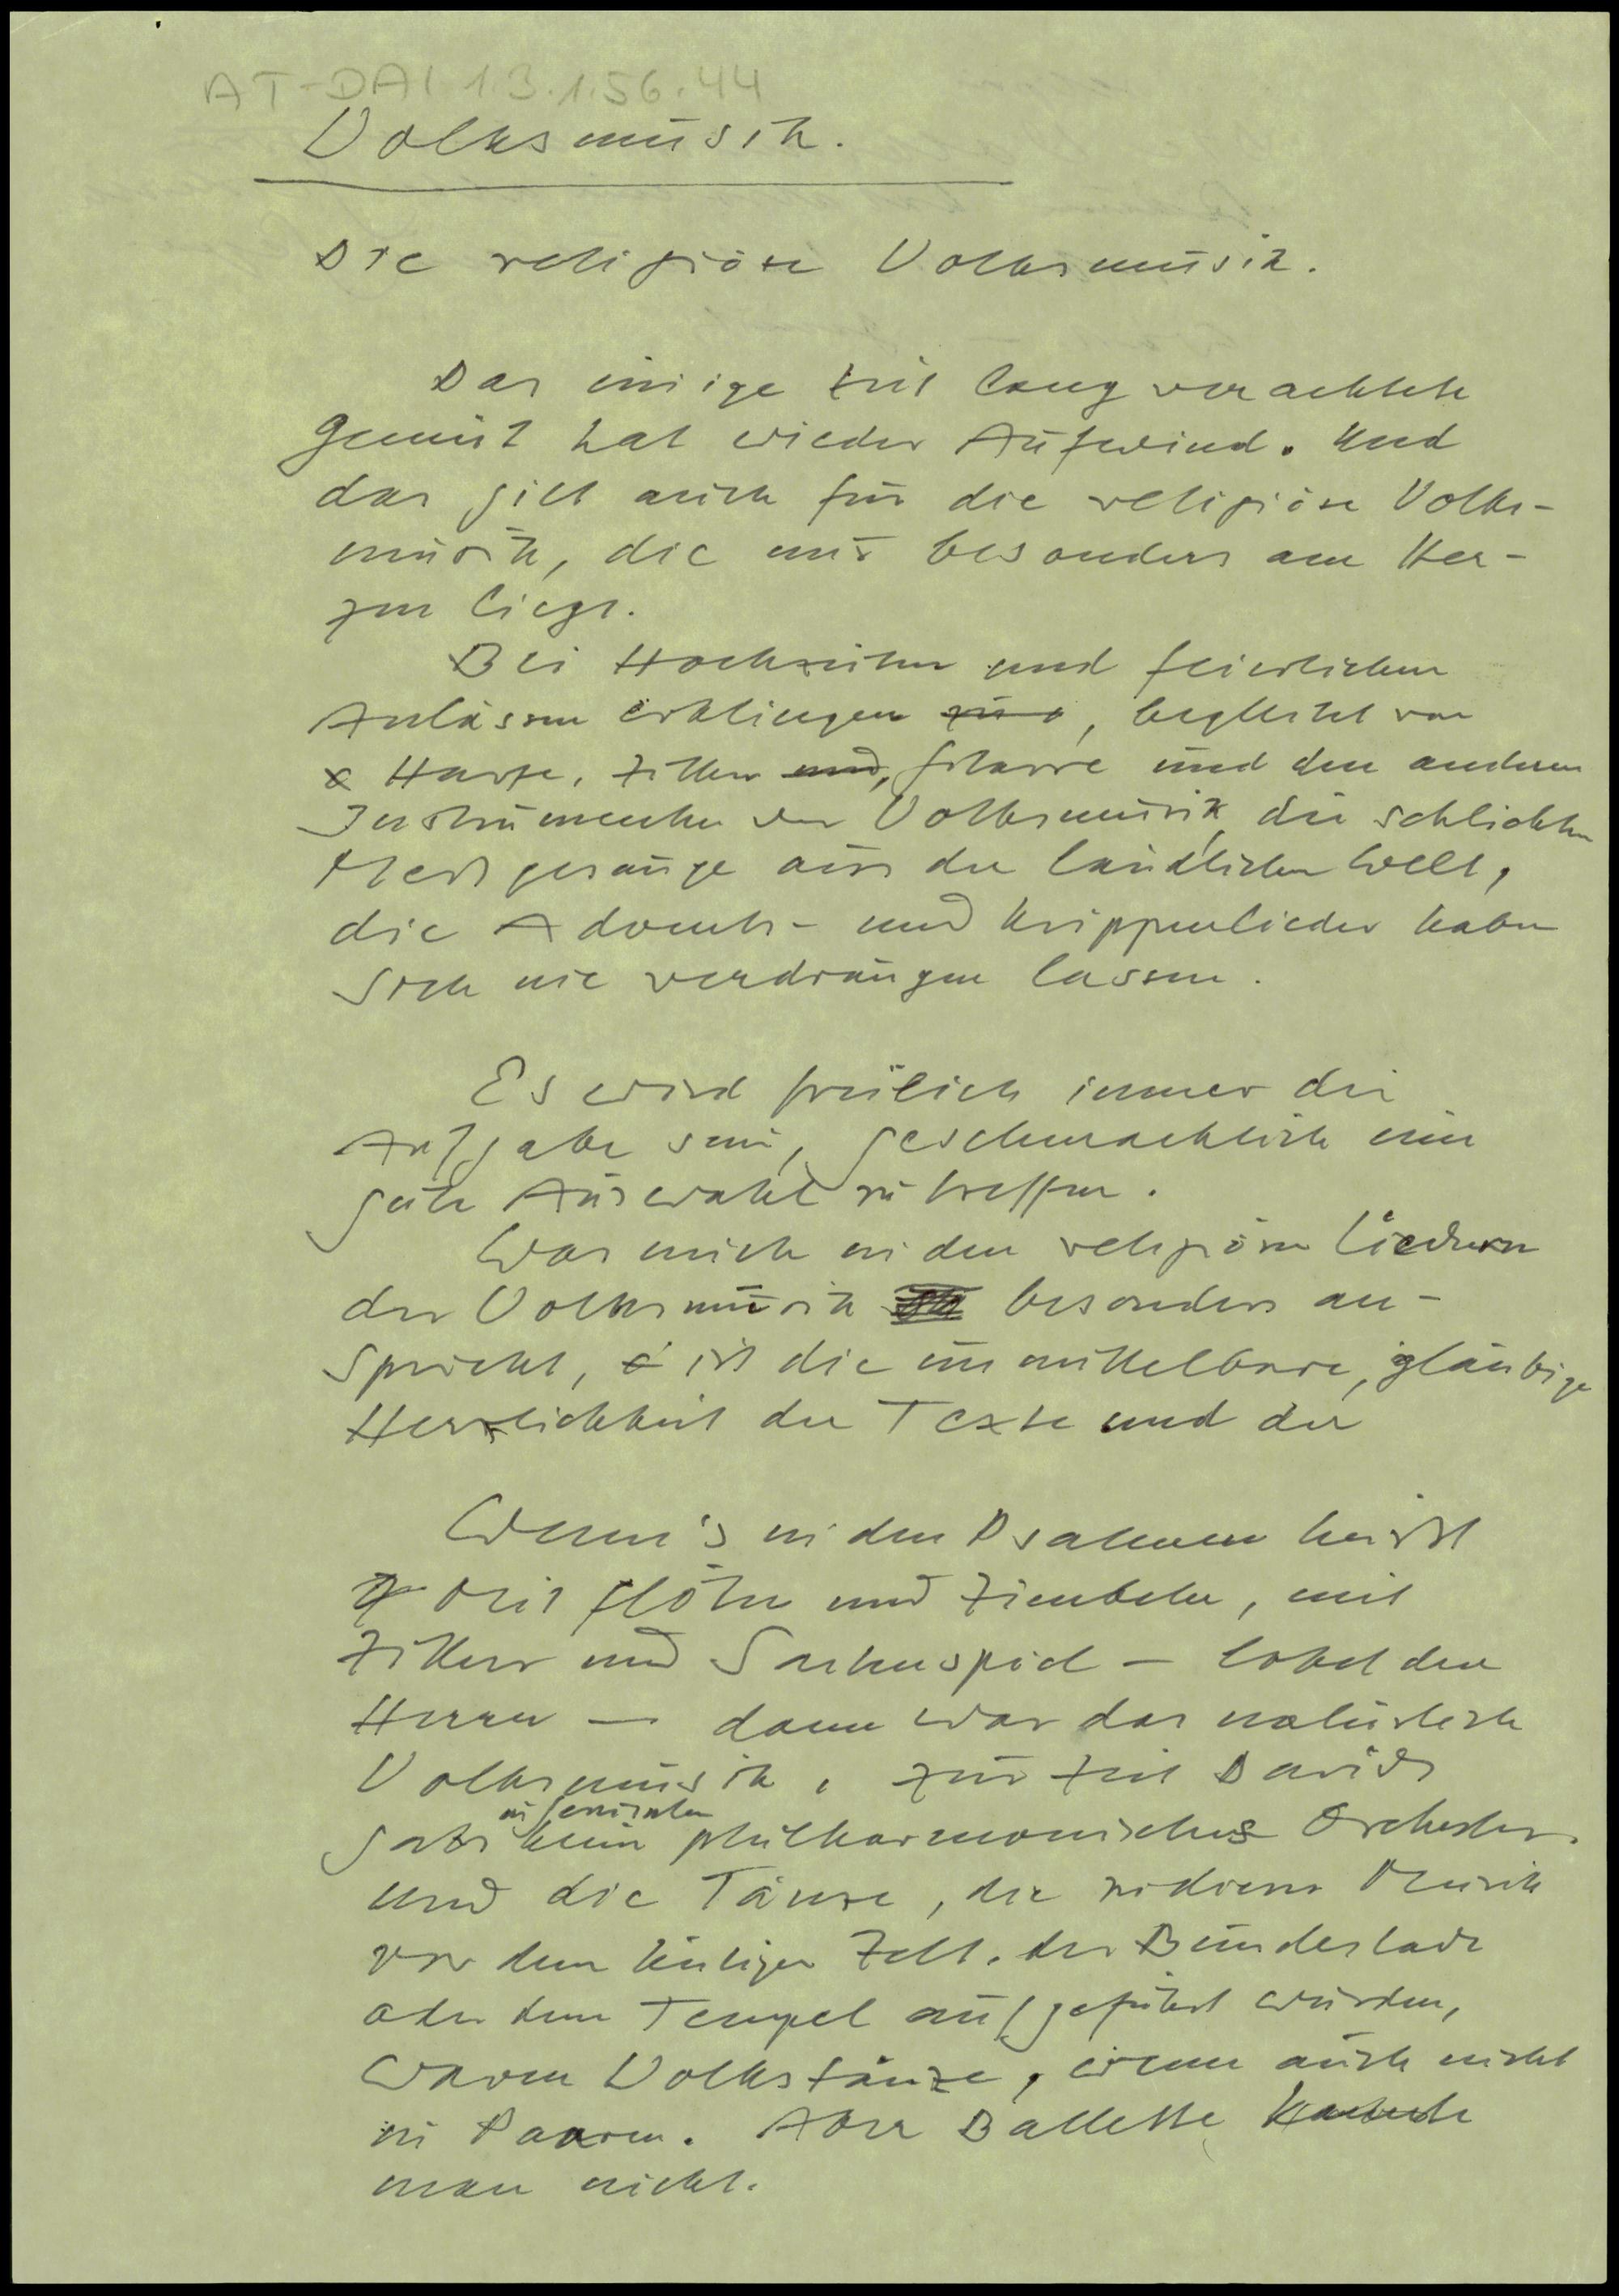 AT-DAI 1.3.1.56.44
Volksmusik.
Die religiöse Volksmusik.
Das einige Zeit lang verachtete
Gemüt hat wieder Aufwind. Und
das gilt auch für die religiöse Volks-
musik, die mir besonders am Her-
zen liegt.
Bei Hochzeiten und feierlichen
Anlässen erklingen, begleitet von
Harfe, Zither, Gitarre und den anderen
Instrumenten der Volksmusik, die schlichten
Messgesänge aus der ländlichen Welt,
die Advents- und Krippenlieder haben
sich nie verdrängen lassen.
Es wird freilich immer die
Aufgabe sein, geschmacklich eine
gute Auswahl zu treffen.
Was mich in den religiösen Liedern
der Volksmusik besonders an-
spricht, ist die unmittelbare, gläubige
Herzlichkeit der Texte und der
Wenn's in den Psalmen heisst
Mit Flöten und Zimbeln, mit
Zither und Saitenspiel – lobet den
Herrn – dann war das natürlich
Volksmusik, zur Zeit Davids
gab's in Jerusalem kein philharmonisches Orchester.
und die Tänze, die zu dieser Musik
vor dem heiligen Zelt, der Bundeslade
oder dem Tempel aufgeführt wurden,
waren Volkstänze, wenn auch nicht
in Paaren. Aber Ballette kannte
man nicht.